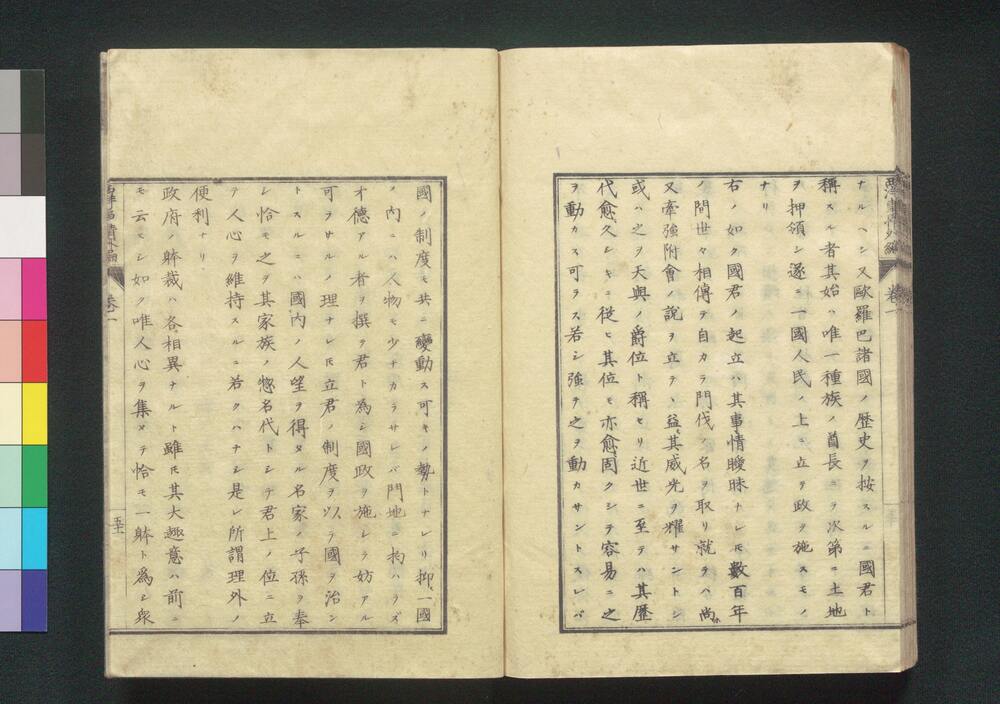 西洋事情外編 卷一
ナルヘシ又歐羅巴諸國ノ歴史ヲ按スルニ國君ト
稱スル者其始ハ唯一種族ノ酋長ニテ次第ニ土地
ヲ押領シ遂ニ一國人民ノ上ニ立テ政ヲ施スモノ
ナリ
右ノ如ク國君ノ起立ハ其事情曖昧ナレ𪜈數百年
ノ間世々相傳テ自カラ門伐ノ名ヲ取リ就テハ尚
又牽強附會ノ說ヲ立テヽ益其威光ヲ耀サントシ
或ハ之ヲ天與ノ爵位ト稱セリ近世ニ至テハ其歷
代愈久シキニ從ヒ其位モ亦愈固クシテ容易ニ之
ヲ動カス可ラス若シ強テ之ヲ動カサントスレバ
國ノ制度モ共ニ變動ス可キノ勢トナレリ抑一國
ノ内ニハ人物モ少ナカラサレバ門地ニ拘ハラズ
才德アル者ヲ撰テ君ト為シ國政ヲ施シテ妨アル
可ラサルノ理ナレ𪜈立君ノ制度ヲ以テ國ヲ治ン
トスルニハ國内ノ人望ヲ得タル名家ノ子孫ヲ奉
シ恰モ之ヲ其家族ノ惣名代トシテ君上ノ位ニ立
テ人心ヲ維持スルニ若クハナシ是レ所謂理外ノ
便利ナリ
政府ノ躰裁ハ各相異ナルト雖𪜈其大趣意ハ前ニ
モ云ヒシ如ク唯人心ヲ集メテ恰モ一躰ト為シ衆
西洋事情外編 卷之一